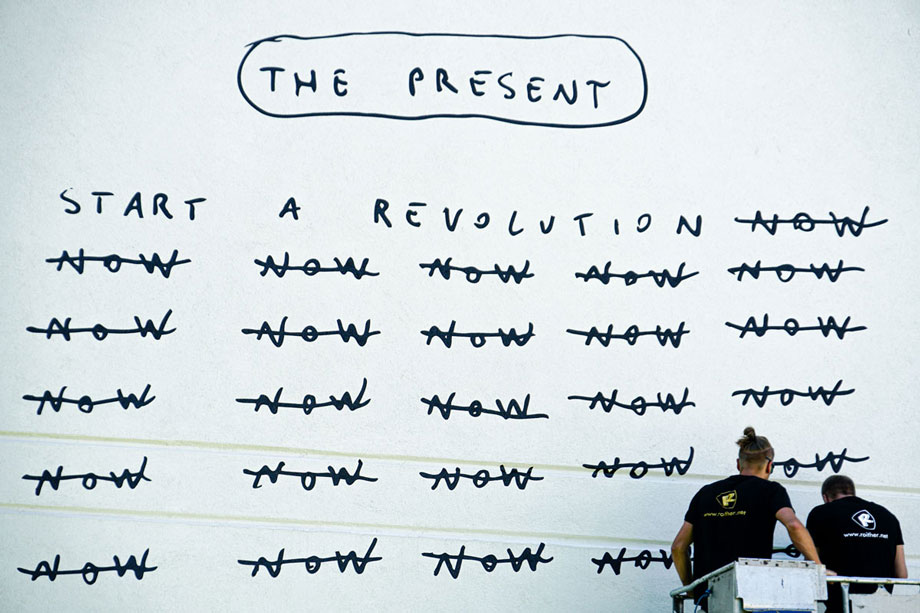 THE PRESENT
START A REVOLUTION NOW
NOW NOW NOW NOW NOW
NOW NOW NOW NOW NOW
NOW NOW NOW NOW NOW
NOW NOW NOW NOW NOW
NOW NOW NOW NOW
www.roither.net
www.roither.net